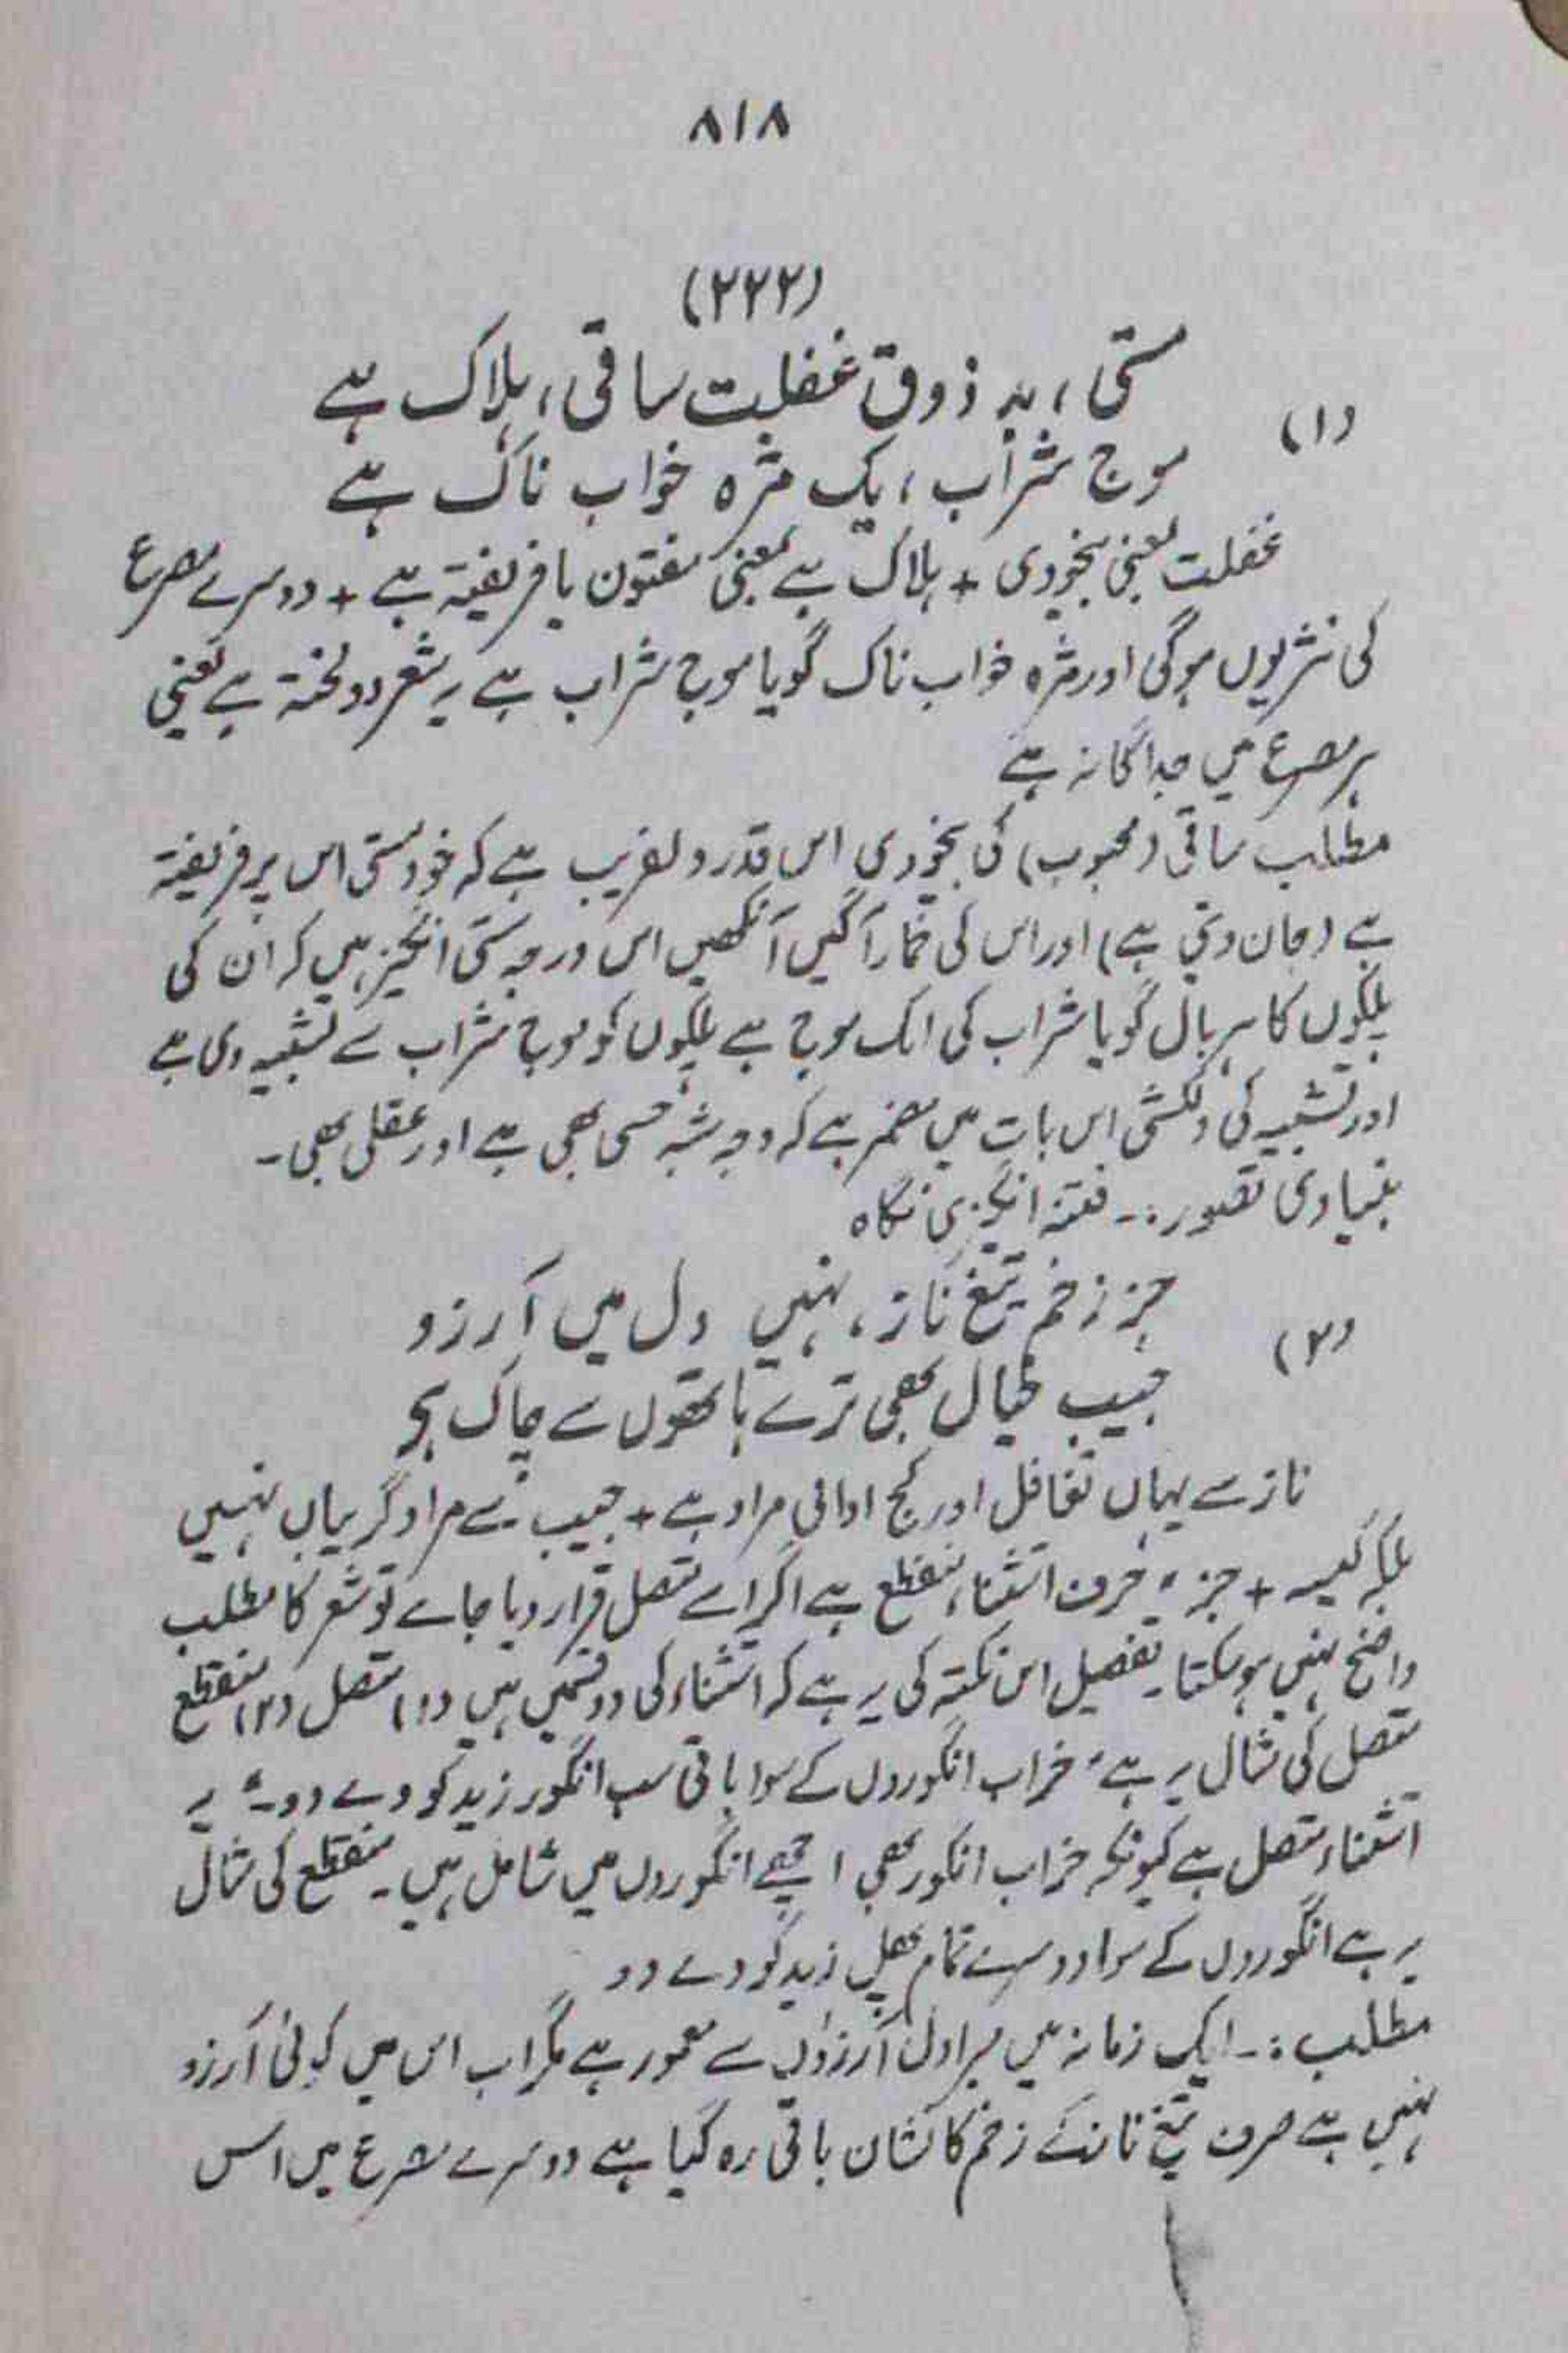 ۸۱۸
(۲۲۲)
مستی، بہ ذوق غفلت ساقی، ہلاک ہے
(۱)
موج شراب، یک مژہ خواب ناک ہے
غفلت بمعنی بیخودی + ہلاک ہے بمعنی مفتون یا فریفتہ ہے + دوسرے مصرع
کی نثریوں ہوگی اور مژہ خواب ناک گویا موج شراب ہے یہ شعر دو لخت ہے یعنی
ہر مصرع میں جداگانہ ہے
مطلب ساقی (محبوب) کی بیخودی اس قدر دلفریب ہے کہ خود مستی اس پر فریفتہ
ہے (جان دیتی ہے) اور اس کی خمارآگیں آنکھیں اس درجہ مستی انگیز ہیں کہ ان کی
پلکوں کا ہر بال گویا شراب کی اک موج ہے پلکوں کو موج شراب سے تشبیہ دی ہے
اور تشبیہ کی دلکشی اس بات میں مضمر ہے کہ وجہ شبہ حسی بھی ہے اور عقلی بھی۔
بنیادی تصور:۔ فتنہ انگیزی نگاہ
جز زخم تیغ ناز، نہیں دل میں آرزو
(۲)
جیب خیال بھی ترے ہاتھوں سے چاک ہے
ناز سے یہاں تغافل اور کج ادائی مراد ہے + جیب سے مراد گریباں نہیں
بلکہ کیسہ + جز، حرف استثناء منقطع ہے اگر اسے متصل قرار دیا جاے تو شعر کا مطلب
واضح نہیں ہوسکتا۔ تفصیل اس نکتہ کی یہ ہے کہ استثناء کی دو قسمیں ہیں (۱) متصل (۲) منقطع
متصل کی مثال یہ ہے "خراب انگوروں کے سوا باقی سب انگور زید کو دے دو۔" یہ
استثناء متصل ہے کیونکہ خراب انگور بھی اچھے انگوروں میں شامل ہیں۔ منقطع کی مثال
یہ ہے انگوروں کے سوا دوسرے تمام پھل زید کو دے دو
مطلب:۔ ایک زمانہ میں میرا دل آرزوں سے معمور ہے مگر اب اس میں کوئی آرزو
نہیں ہے صرف تیغ ناز کے زخم کا نشان باقی رہ گیا ہے دوسرے مصرع میں اس